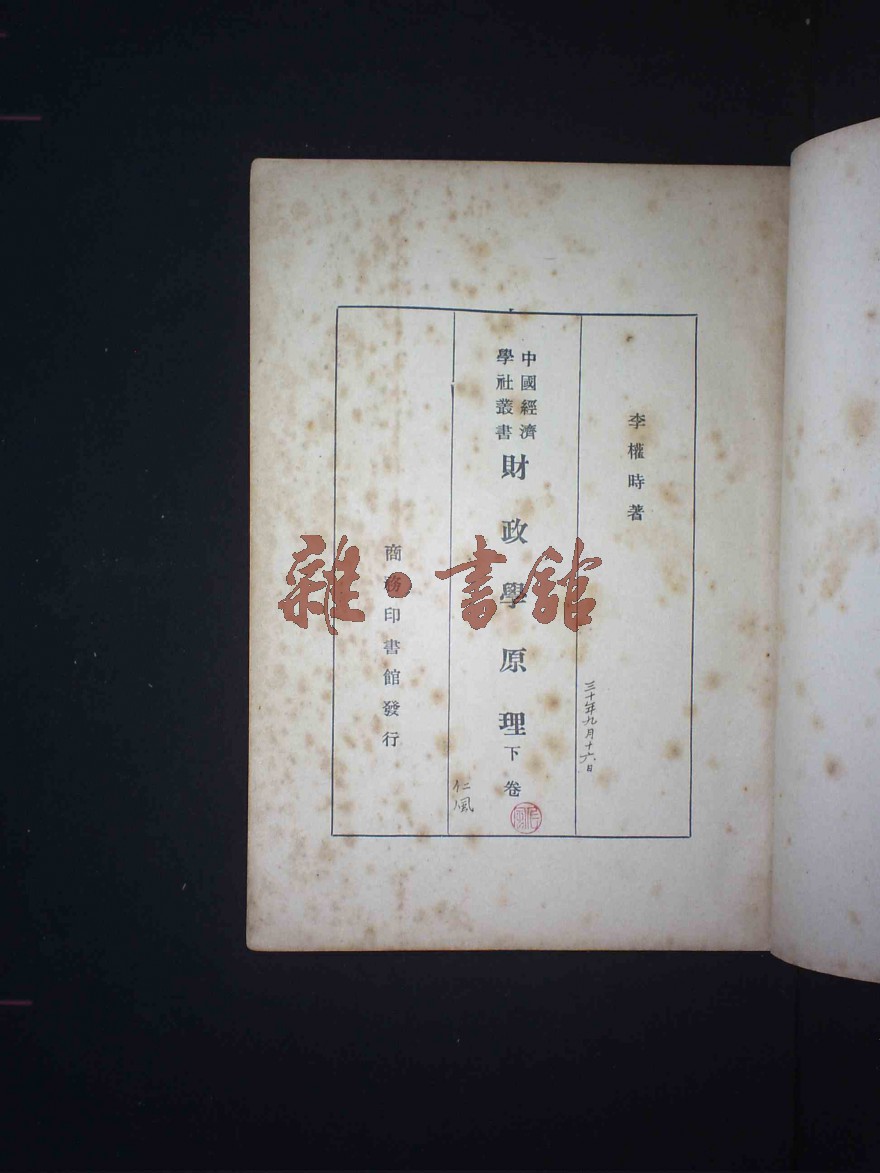 李權時著
三十年九月十六日
中國經濟
學社叢書
財政學原理下卷
仁風
商務印書館發行
雜·書館